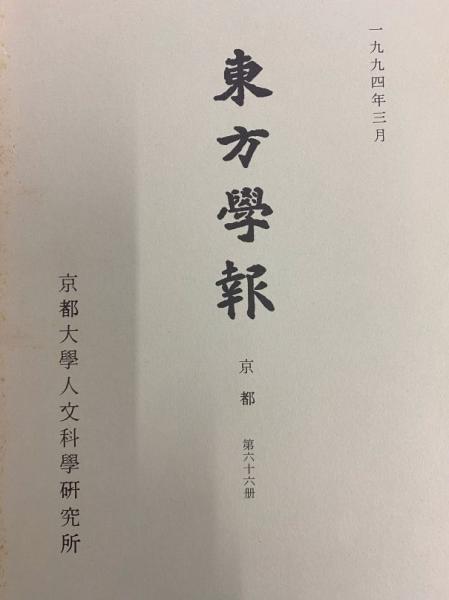 一九九四年三月
東方學報
京都 第六十六册
京都大學人文科學研究所